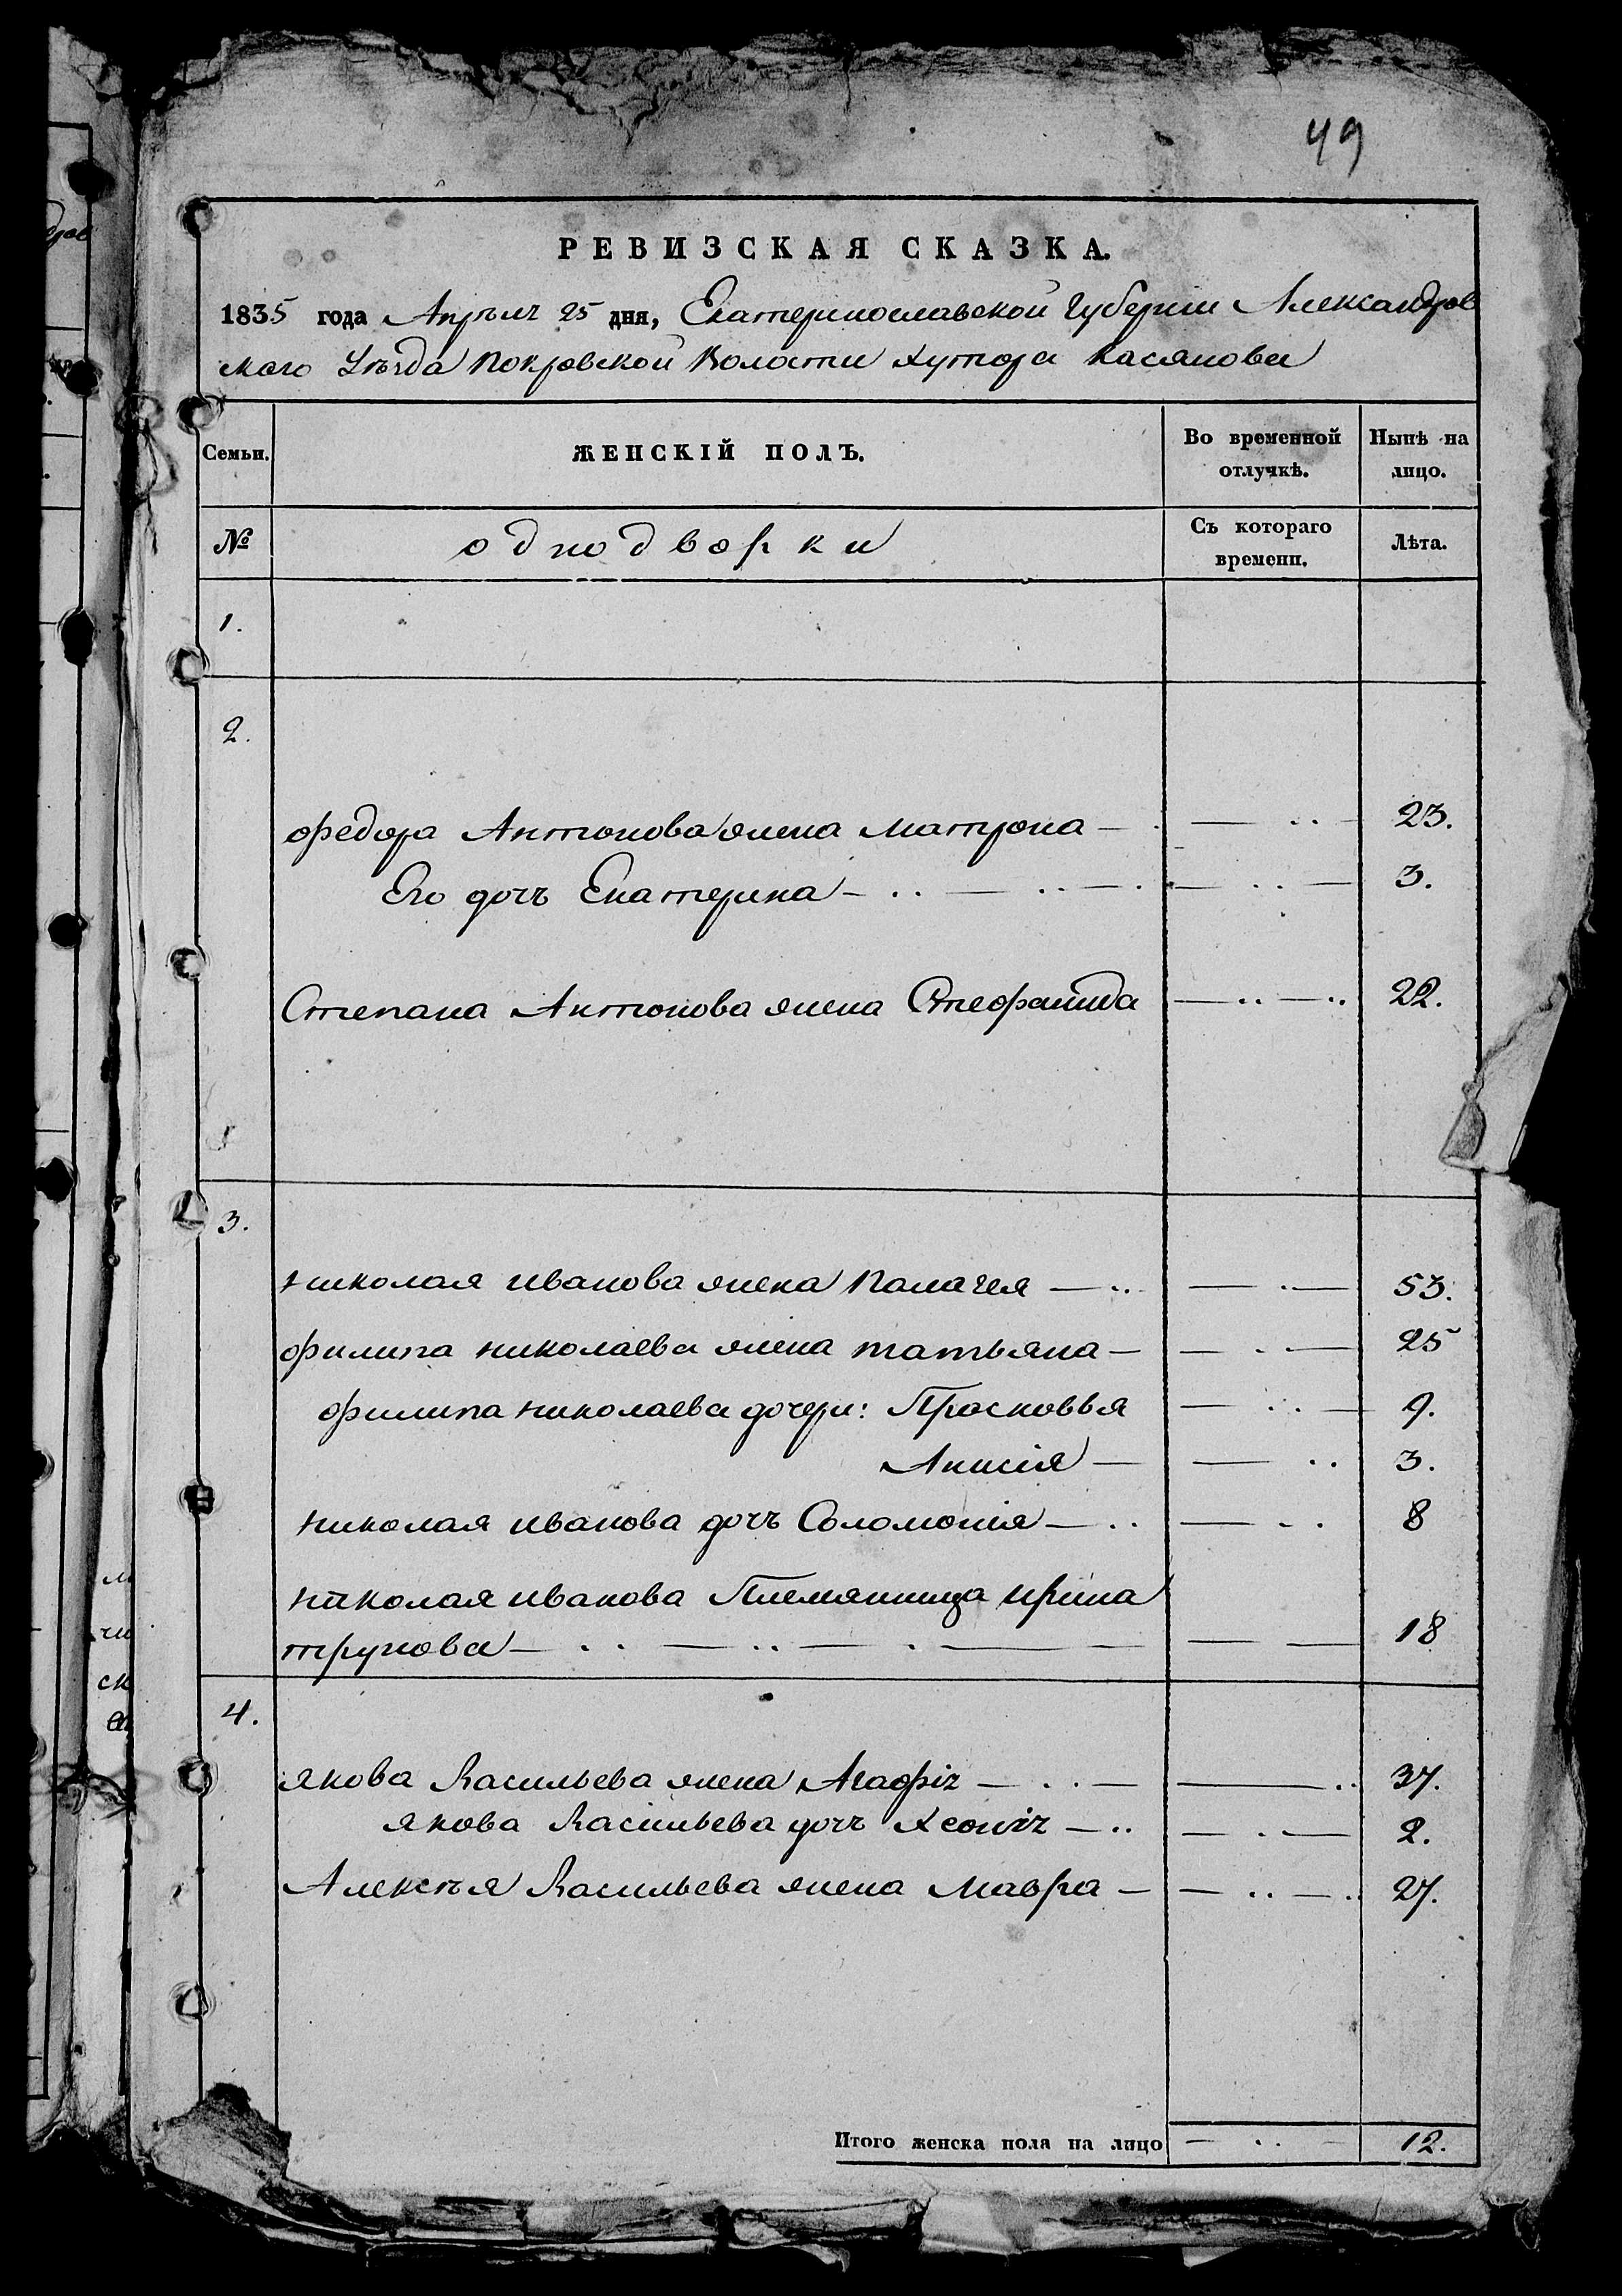 49
РЕВИЗСКАЯ СКАЗКА.
1835 года Апрѣля 25 дня, Екатеринославской Губерніи Александров
скаго Уѣзда Покровской Волости Хутора Касянова
Семьи. ЖЕНСКІЙ ПОЛЪ. Во временной отлучкѣ. Нынѣ на лицо.
№ однодворки Съ котораго времени. Лѣта.
1.
2.
Федора Антонова жена Матрона — 23.
Его дочь Екатерина — 3.
Степана Антонова жена Стефанида — 22.
3.
Николая Иванова жена Палагея — 53.
Филипа Николаева жена Татьяна — 25
Филипа Николаева дочери: Прасковья — 9.
Анисія — 3.
Николая Иванова дочь Соломонія — 8
Николая Иванова Племянница Ирина
Трунова — 18
4.
Якова Васильева жена Агафія — 37.
Якова Васильева дочь Хеонія — 2.
Алексѣя Васильева жена Мавра — 27.
Итого женска пола на лицо — 12.